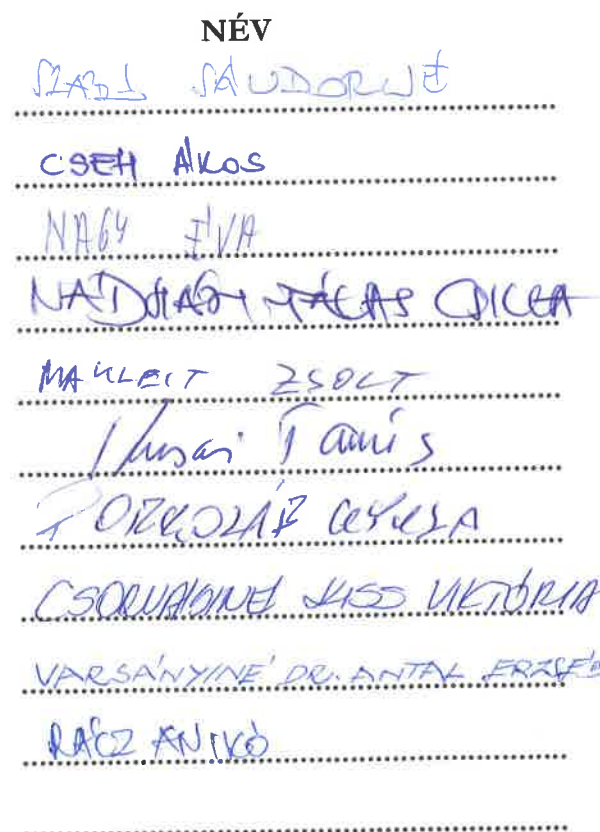 NÉV
SÁNDORNÉ
CSEH ÁKOS
NAGY ÉVA
NÁDHÁZY TAKÁCS CSILLA
MAKLEIT ZSOLT
Tamás
PORKOLÁB GYULA
CSORVÁSINÉ KISS VIKTÓRIA
VARSÁNYINÉ DR. ANTAL ERZSÉB
RÁCZ ANIKÓ